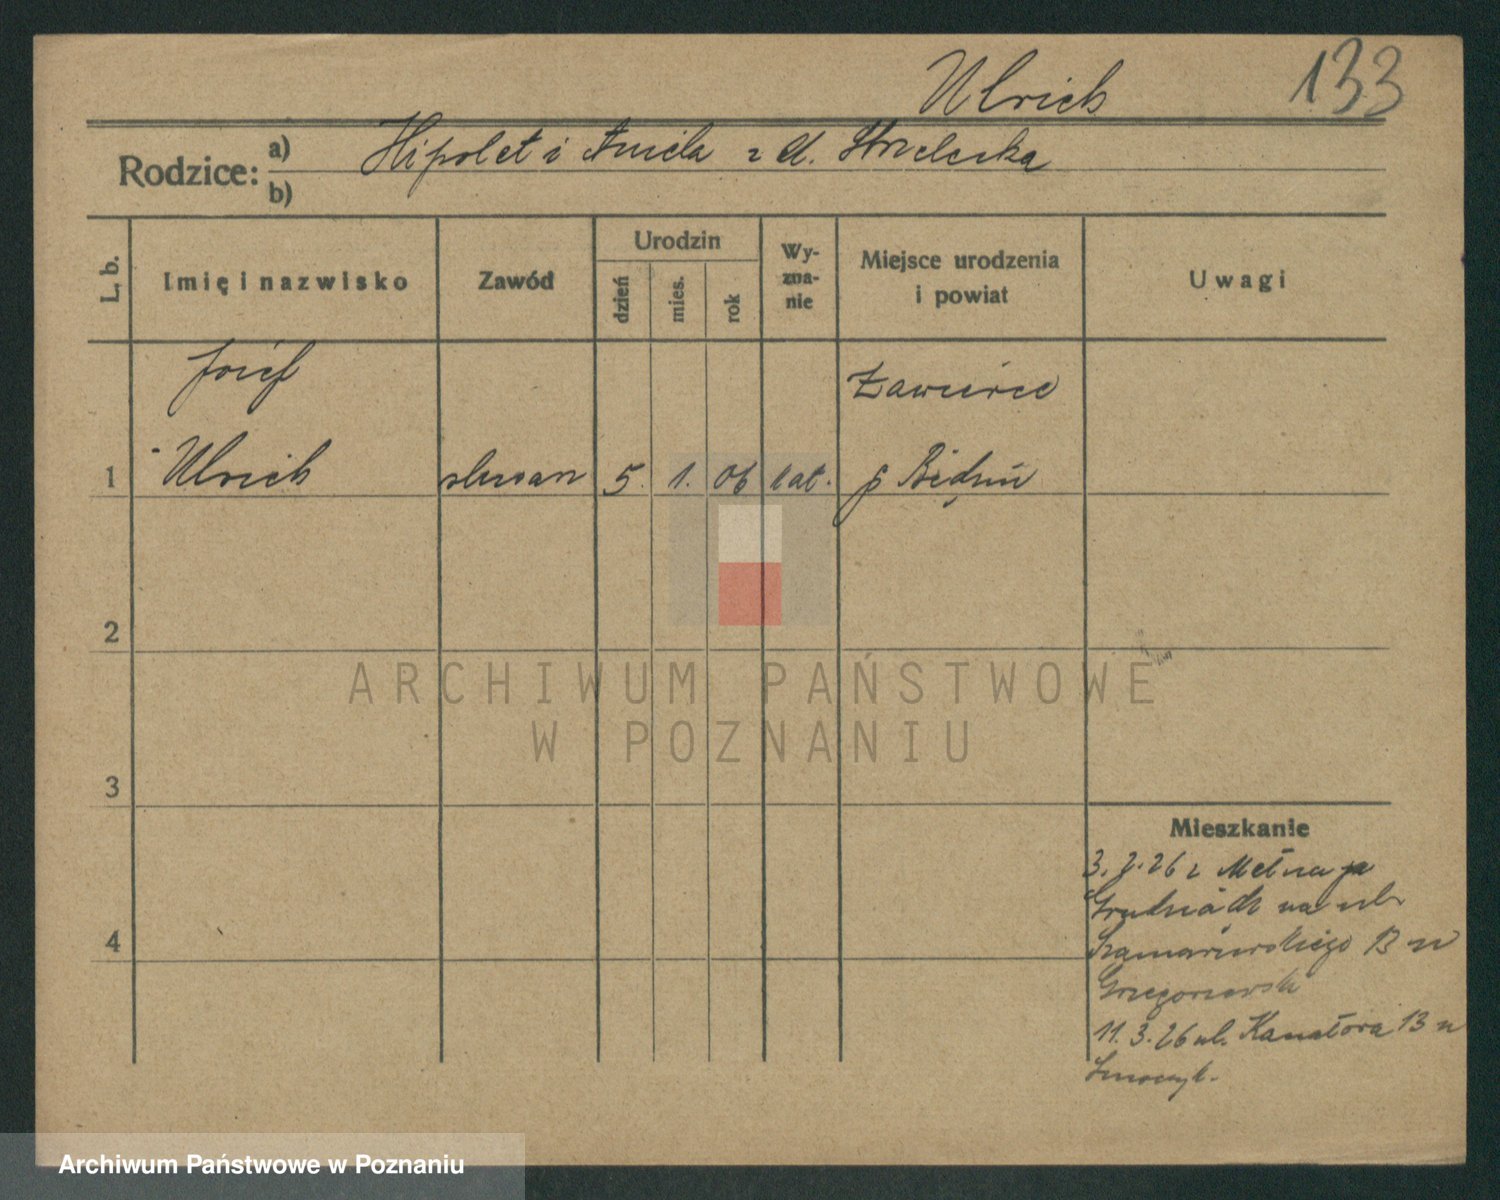 Ulrich 133
Rodzice: a) Hipolit i Aniela z d. Strzelecka
b)
L. b.
Imię i nazwisko
Zawód
Urodzin
dzień
mies.
rok
Wy-
zna-
nie
Miejsce urodzenia
i powiat
Uwagi
Józef
Zawierce
1 Ulrich slusarz 5. 1. 06 kat. p Będzin
2
3
4
Mieszkanie
3. 26 z Mełna p
Grudziądz na ul
Szamarzewskiego 13 u
11. 3. 26 ul. Kanałowa 13 u
ARCHIWUM PAŃSTWOWE
W POZNANIU
Archiwum Państwowe w Poznaniu